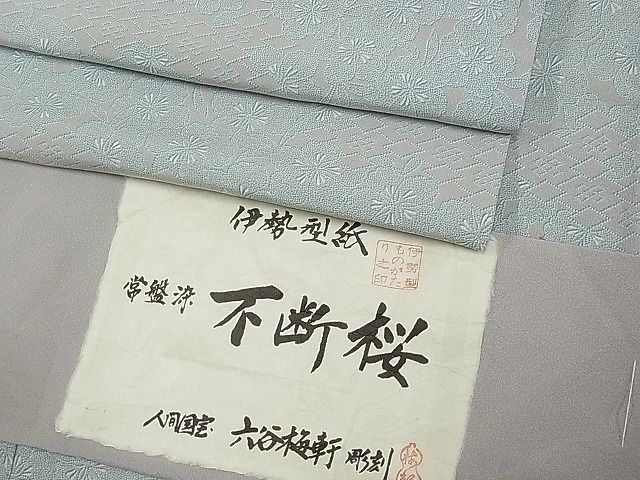 伊勢型紙
伊勢型
ものがた
り之印
常盤染
不断桜
人間国宝 六谷梅軒 彫刻